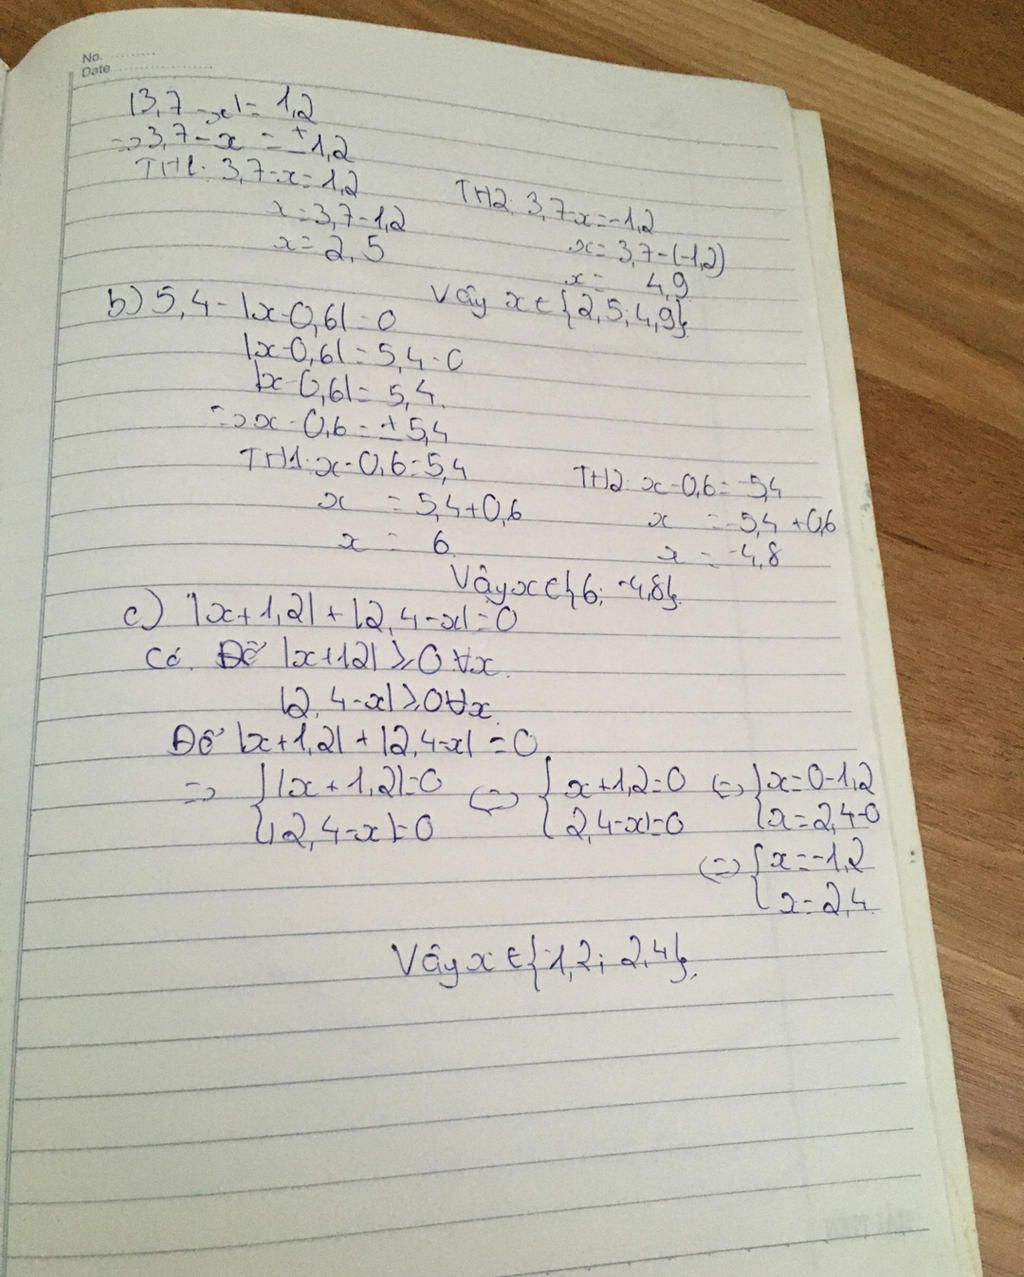 No.
Date
|3,7 - x| = 1,2
=> 3,7 - x = ±1,2
TH1: 3,7-x=1,2
x=3,7-1,2
x=2,5
TH2: 3,7-x=-1,2
x=3,7-(-1,2)
x= 4,9
Vây x ∈ {2,5; 4,9}.
b) 5,4 - |x-0,6| = 0
|x-0,6| = 5,4-0
|x-0,6| = 5,4.
=> x-0,6 = ±5,4
TH1: x-0,6=5,4
x = 5,4+0,6
x = 6.
TH2: x-0,6=-5,4
x = -5,4+0,6
x = -4,8
Vây x ∈ {6; -4,8}.
c) |x+1,2| + |2,4-x| = 0
Có. Để |x+1,2| ≥ 0 ∀x.
|2,4-x| ≥ 0 ∀x.
Để |x+1,2| + |2,4-x| = 0.
=> { |x+1,2|=0 <=> { x+1,2=0 <=> { x=0-1,2
{ |2,4-x|=0 { 2,4-x=0 { x=2,4-0
<=> { x=-1,2
{ x=2,4.
Vây x ∈ {-1,2; 2,4}.